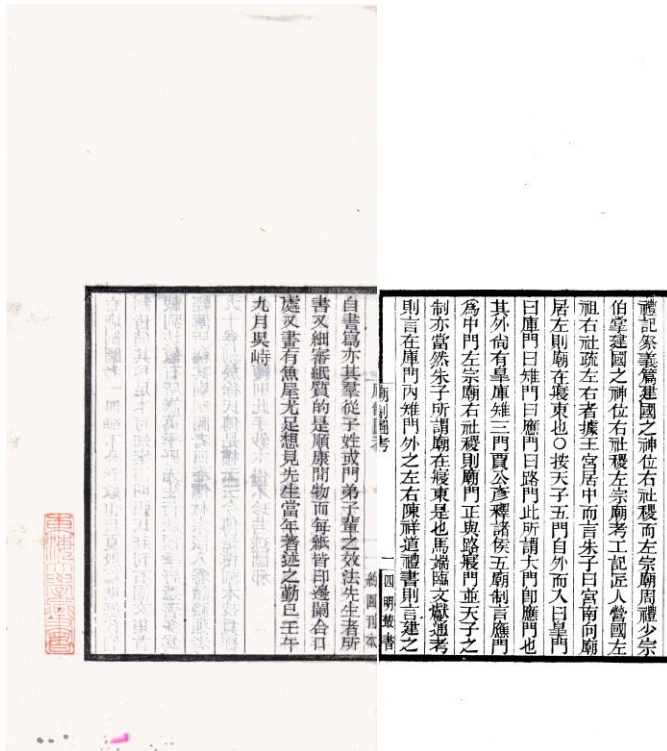 禮記祭義篇建國之神位右社稷而左宗廟周禮少宗
伯掌建國之神位右社稷左宗廟考工記匠人營國左
祖右社疏左右者據王宮居中而言朱子曰宮南向廟
居左則廟在寢東也○按天子五門自外而入曰皋門
曰庫門曰雉門曰應門曰路門此所謂大門即應門也
其外尙有皋庫雉三門賈公彥釋諸侯五廟制言應門
爲中門左宗廟右社稷則廟門正與路寢門並天子之
制亦當然朱子所謂廟在寢東是也馬端臨文獻通考
則言在庫門內雉門外之左右陳祥道禮書則言建之
廟制圖考
一
四明叢書
約園刊本
自書爲亦其羣從子姓或門弟子輩之效法先生者所
書又細審紙質的是順康間物而每紙皆印邊闌合口
處又畫有魚尾尤足想見先生當年著述之勤已壬午
九月吳峙